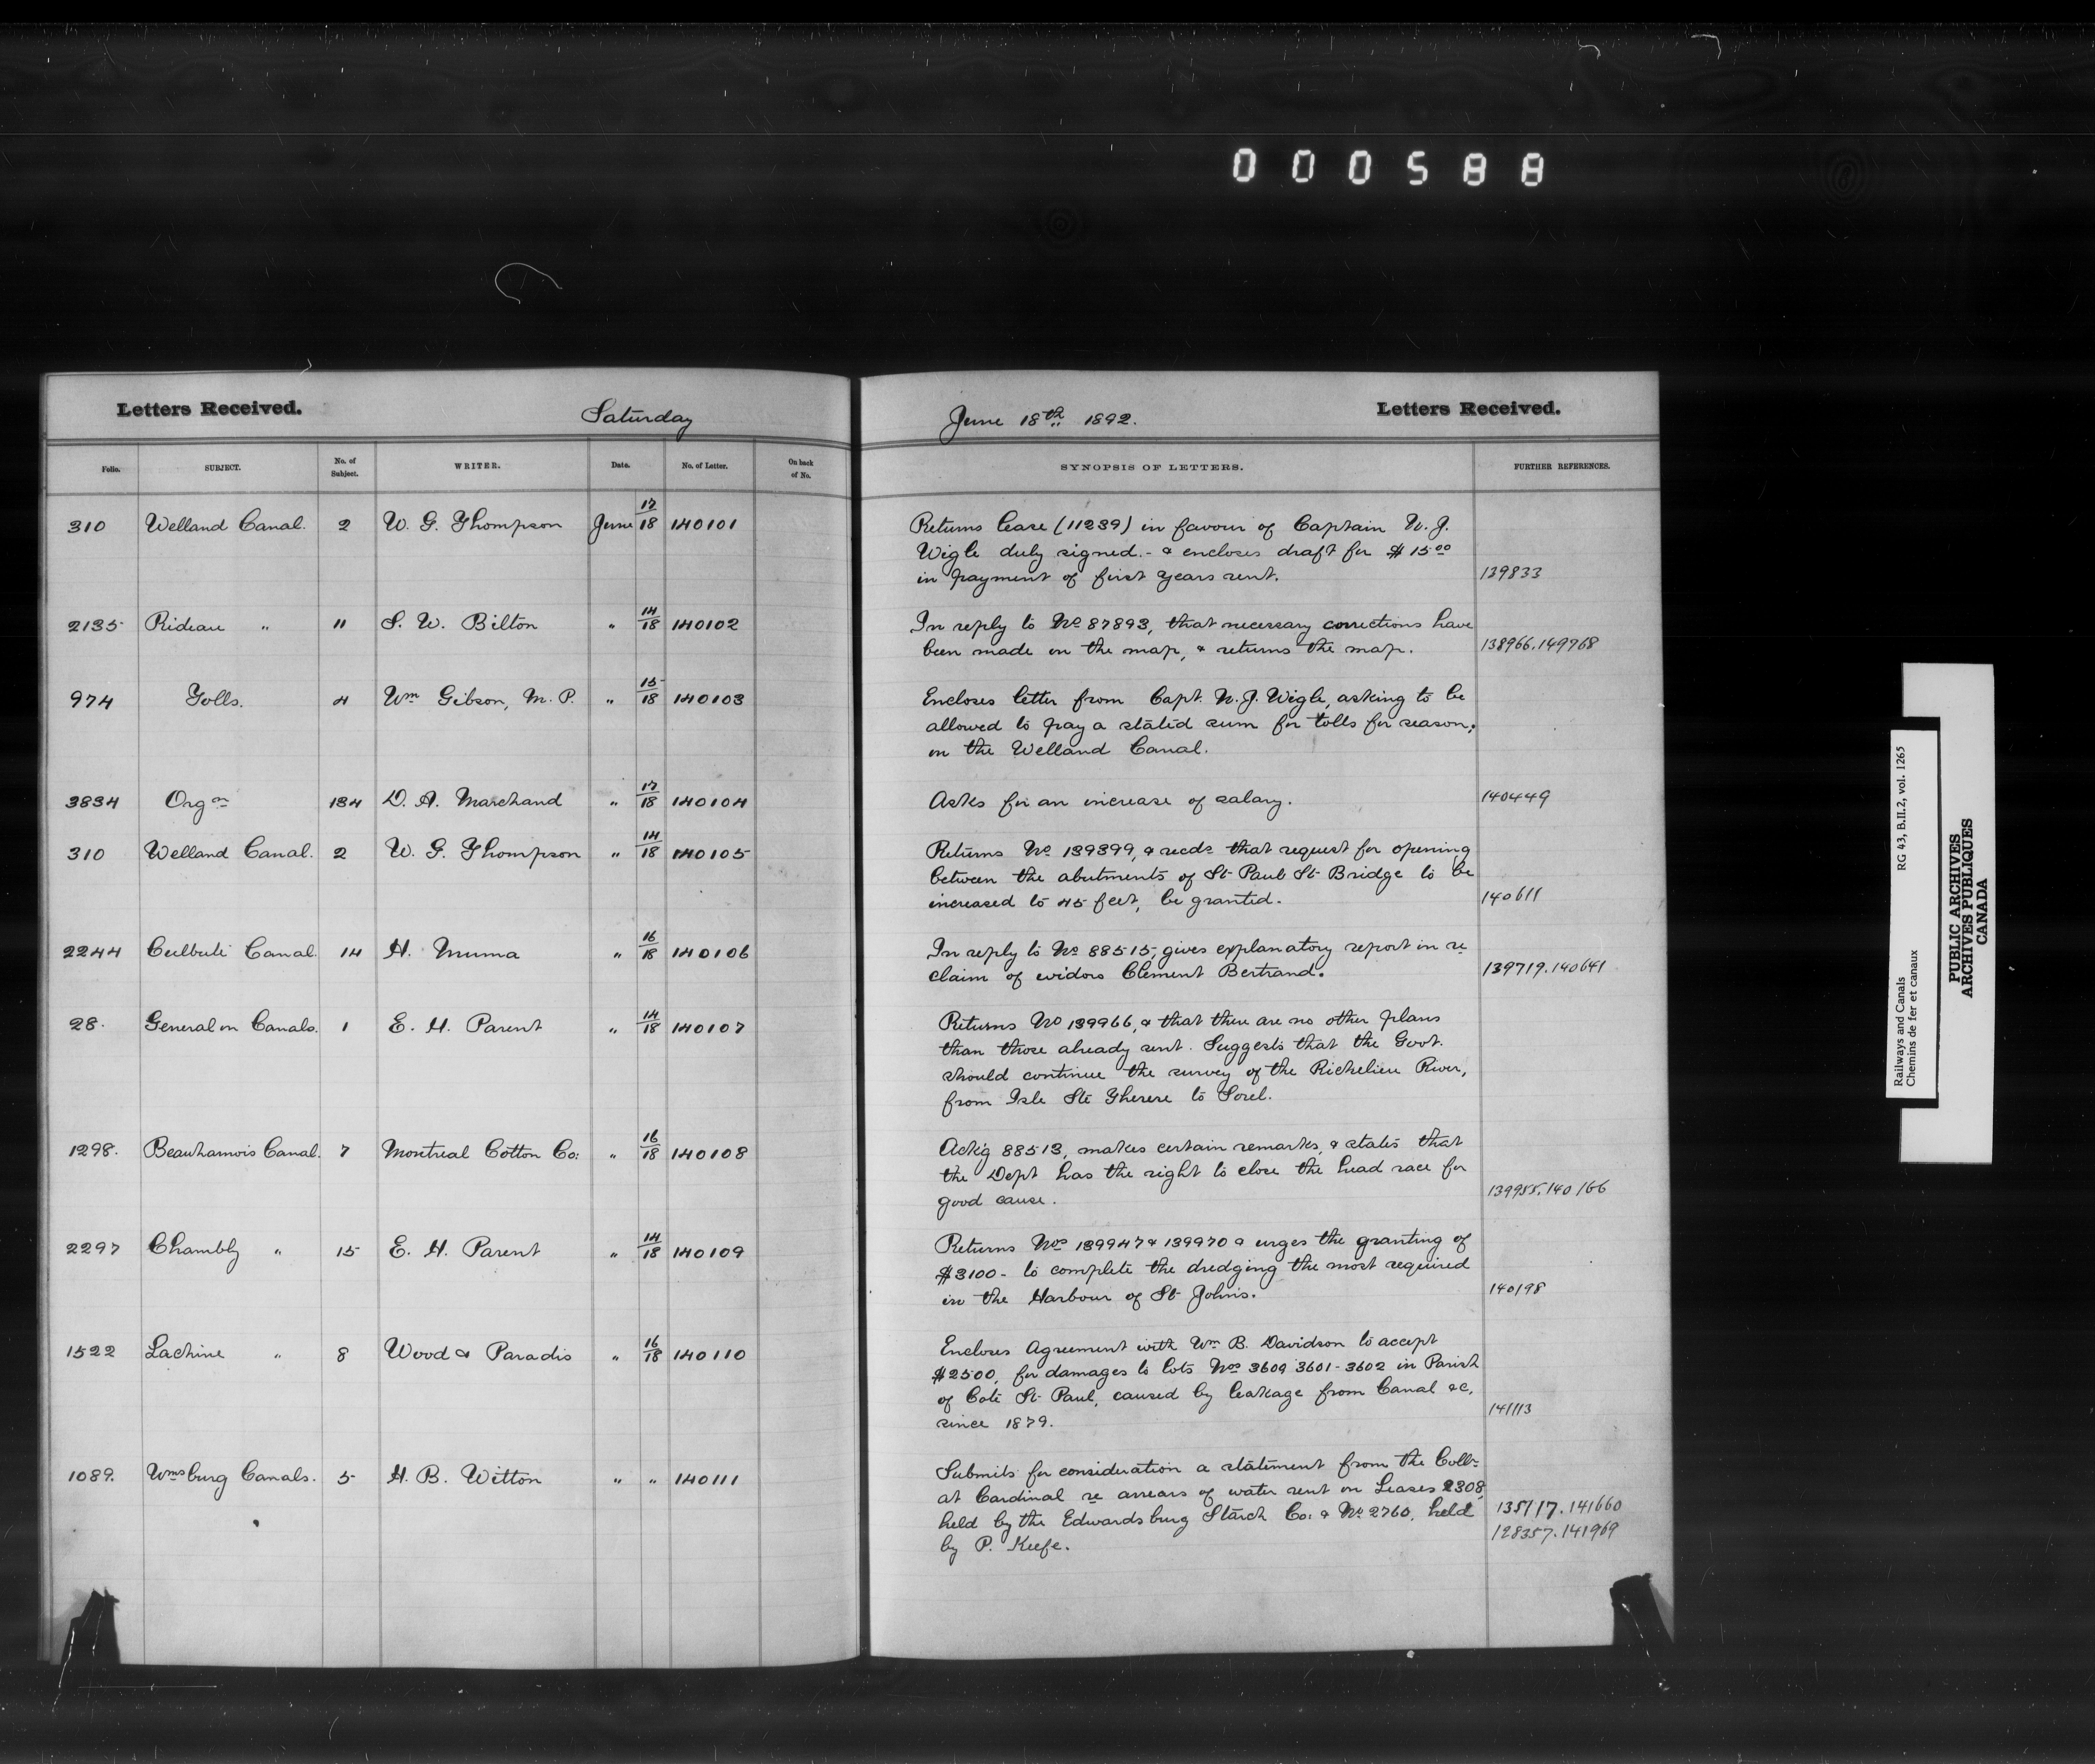 000588
Letters Received. Saturday June 18th 1892. Letters Received.
Folio. SUBJECT. No. of Subject. WRITER. Date. No. of Letter. On back of No. SYNOPSIS OF LETTERS. FURTHER REFERENCES.
310 Welland Canal. 2 W. G. Thompson June 17/18 140101 Returns lease (11239) in favour of Captain N. J.
Wigle duly signed. - & encloses draft for $15 00
in payment of first years rent. 139833
2135 Rideau " 11 S. W. Bilton " 14/18 140102 In reply to No 87893, that necessary corrections have
been made on the map, & returns the map. 138966.149768
974 Tolls. 4 Wm Gibson, M. P. " 15/18 140103 Encloses letter from Capt. N. J. Wigle, asking to be
allowed to pay a stated sum for tolls for season,
on the Welland Canal.
3834 Orgon 134 D. A. Marchand " 17/18 140104 Asks for an increase of salary. 140449
310 Welland Canal. 2 W. G. Thompson " 14/18 140105 Returns No 139399, & recds that request for opening
between the abutments of St Paul St Bridge to be
increased to 45 feet, be granted. 140611
2244 Culbute Canal. 14 H. Mumma " 16/18 140106 In reply to No 88515, gives explanatory report in re
claim of widow Clement Bertrand. 139719.140641
28. General on Canals. 1 E. H. Parent " 14/18 140107 Returns No 139966, & that there are no other plans
than those already sent. Suggests that the Govt.
should continue the survey of the Richelieu River,
from Isle Ste Therese to Sorel.
1298. Beauharnois Canal. 7 Montreal Cotton Co: " 16/18 140108 Ackg 88513, makes certain remarks, & states that
the Dept has the right to close the head race for
good cause. 139955.140166
2297 Chambly " 15 E. H. Parent " 14/18 140109 Returns Nos 139947 & 139970 & urges the granting of
$3100 - to complete the dredging the most required
in the Harbour of St Johns. 140198
1522 Lachine " 8 Wood & Paradis " 16/18 140110 Encloses Agreement with Wm B. Davidson to accept
$2500, for damages to lots Nos 3609 3601-3602 in Parish
of Coté St Paul, caused by leakage from Canal &c.
since 1879. 141113
1089. Wmsburg Canals. 5 H. B. Witton " " 140111 Submits for consideration a statement from the Collr
at Cardinal re arrears of water rent on Leases 2308,
held by the Edwardsburg Starch Co: & No 2760, held 135117.141660
by P. Keefe. 128357.141969
Railways and Canals RG 43, B.II.2, vol. 1265
Chemins de fer et canaux
PUBLIC ARCHIVES
ARCHIVES PUBLIQUES
CANADA